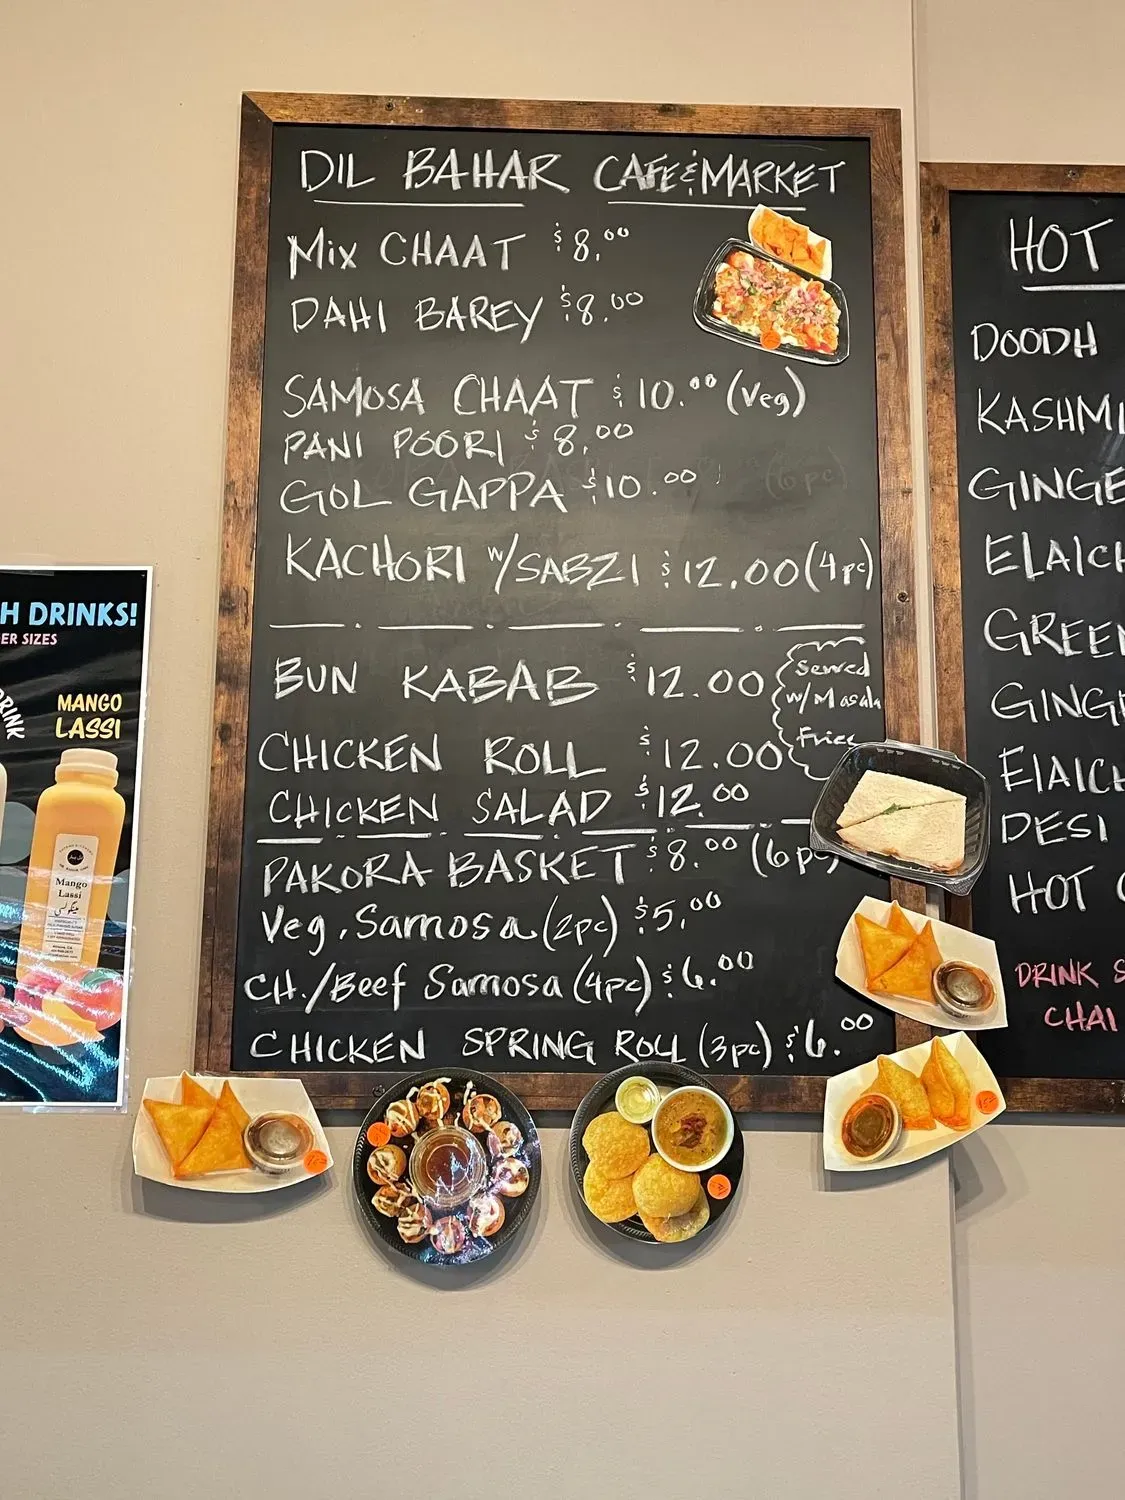 DIL BAHAR CAFE & MARKET
Mix CHAAT $8.00
DAHI BAREY $8.00
SAMOSA CHAAT $10.00 (Veg)
PANI POORI $8.00
GOL GAPPA $10.00
(6pc)
KACHORI w/SABZI $12.00 (4pc)
BUN KABAB $12.00
Served
w/ Masala
Fries
CHICKEN ROLL $12.00
CHICKEN SALAD $12.00
PAKORA BASKET $8.00 (6pc)
Veg. Samosa (2pc) $5.00
CH./Beef Samosa (4pc) $6.00
CHICKEN SPRING ROLL (3pc) $6.00
HOT
DOODH
KASHMI
GINGE
ELAICH
GREEN
GING
ElAICH
DESI
HOT
DRINK S
CHAI
H DRINKS!
ER SIZES
DRINK
MANGO
LASSI
Mango
Lassi